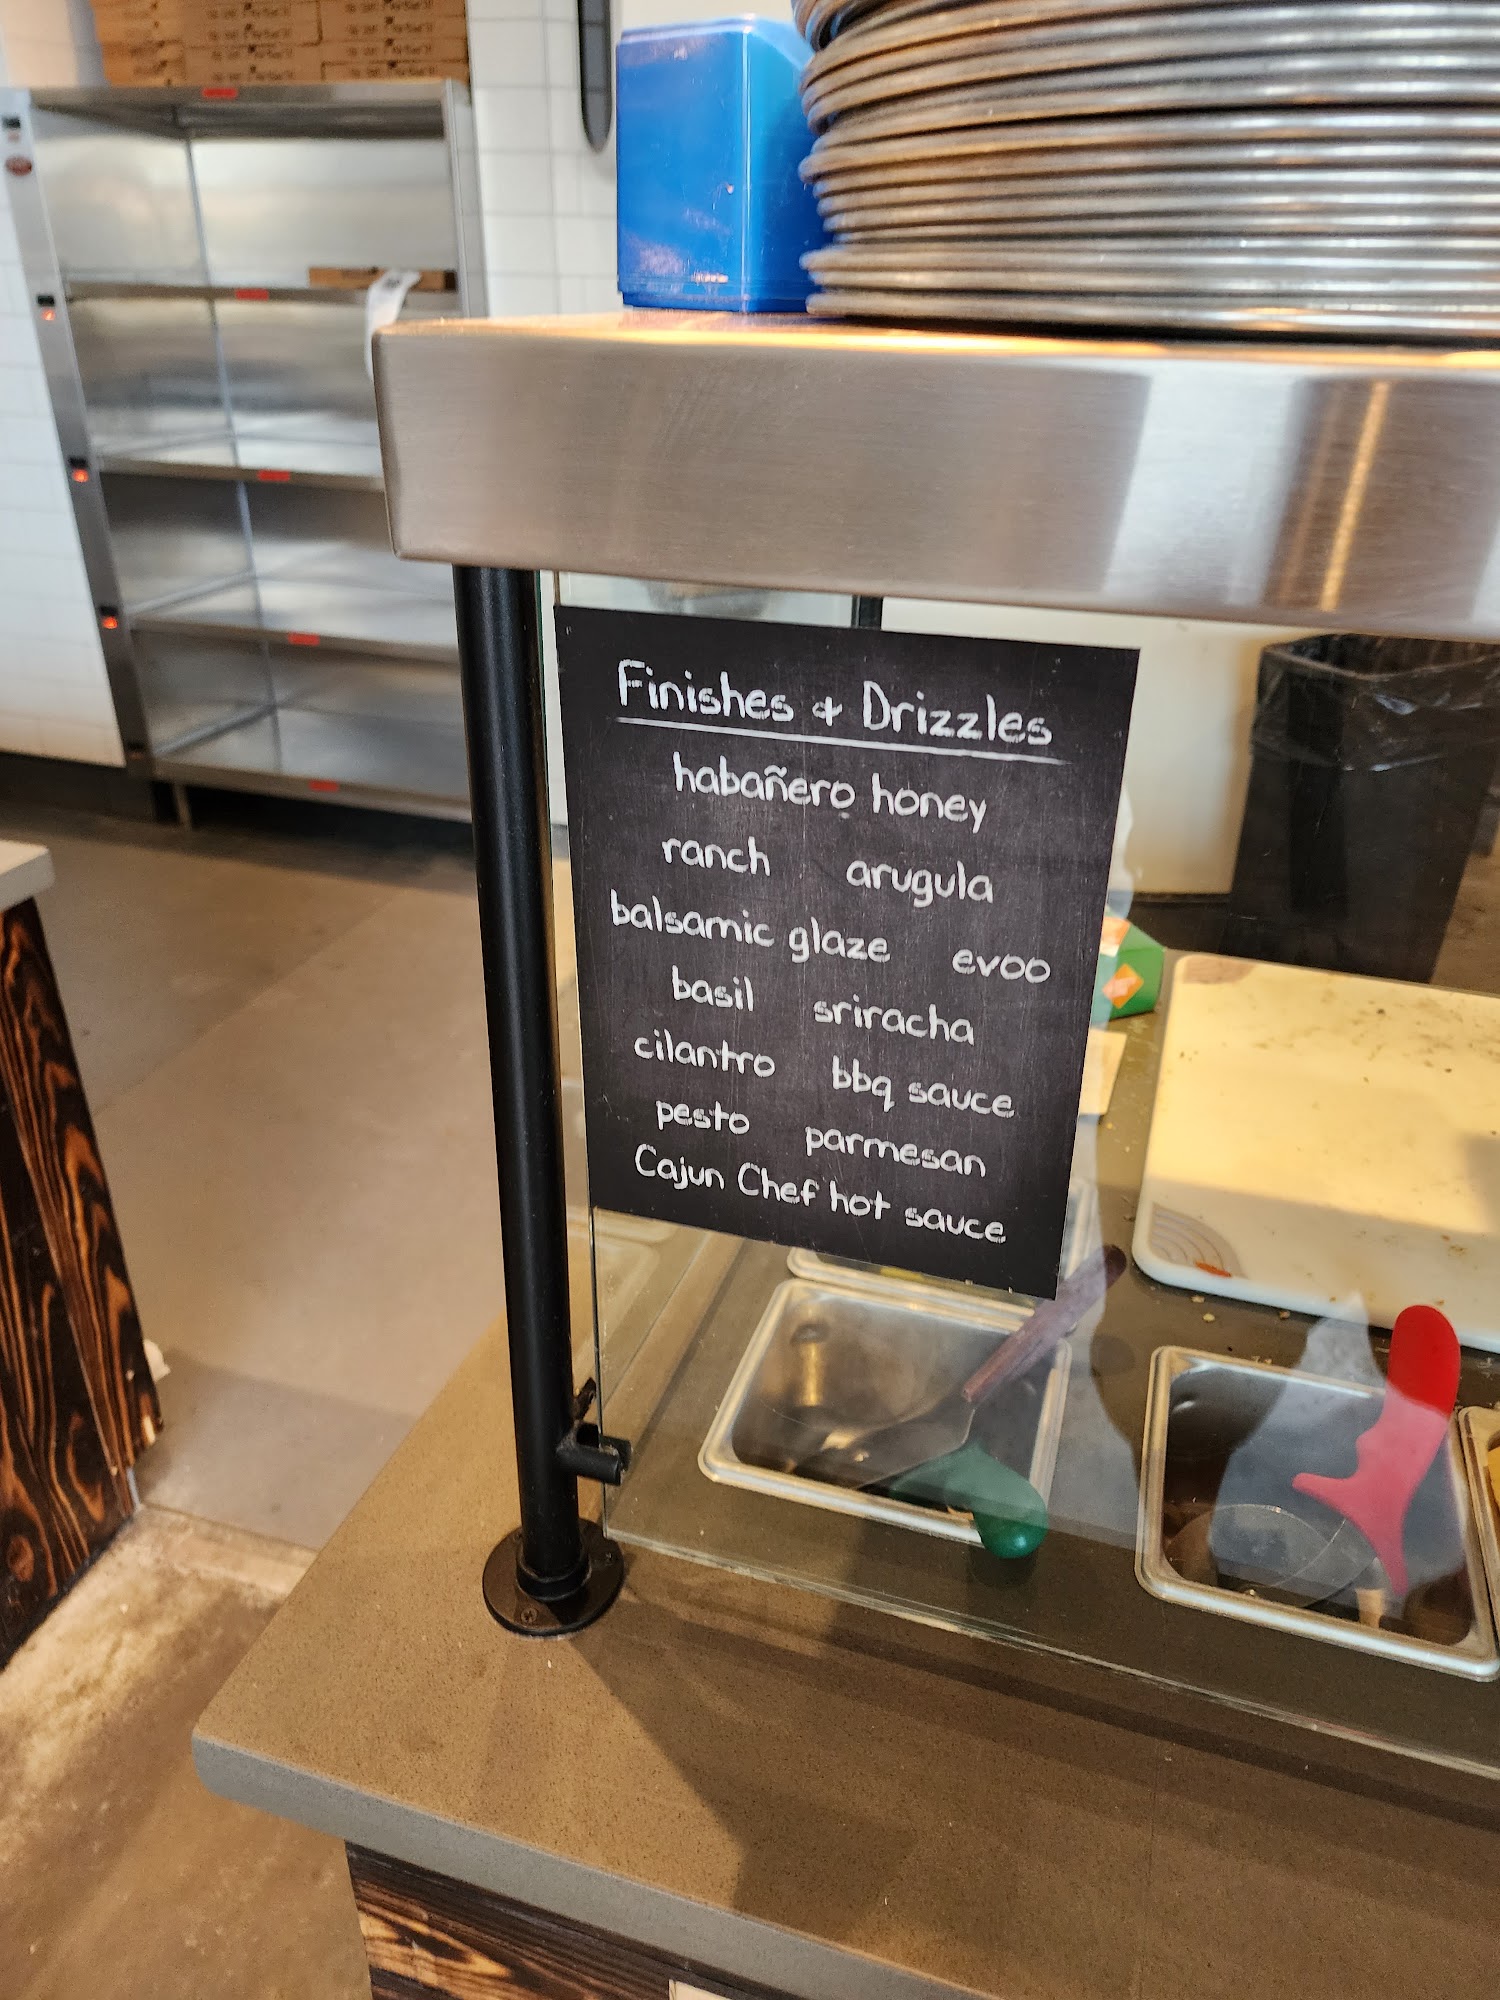 Finishes & Drizzles
habañero honey
ranch arugula
balsamic glaze evoo
basil sriracha
cilantro bbq sauce
pesto parmesan
Cajun Chef hot sauce